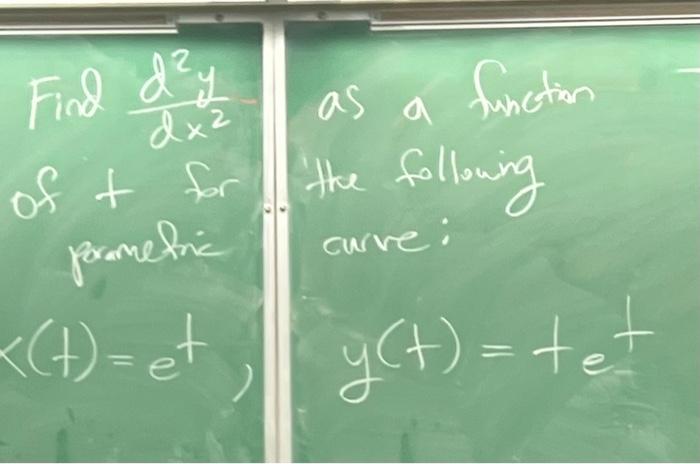 Find d²y/dx² as a function
of t for the following
parametric curve:
x(t) = e^t, y(t) = te^t